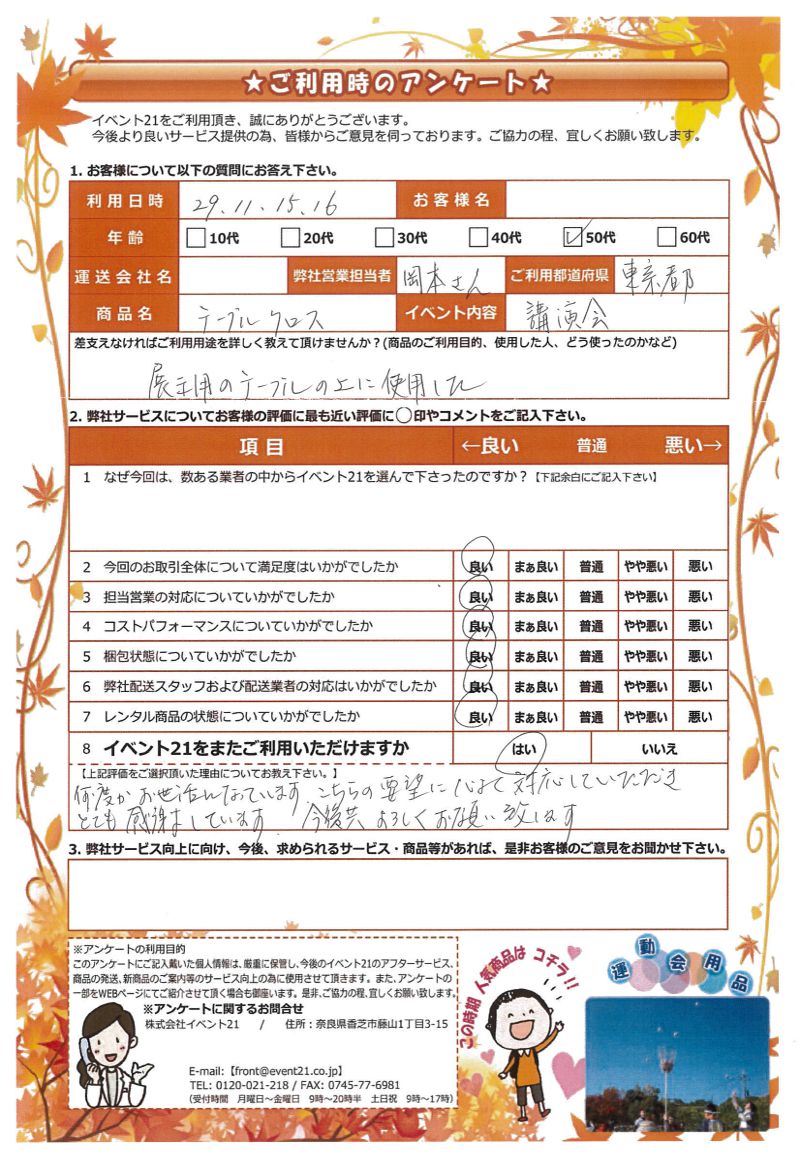 ★ご利用時のアンケート★
イベント21をご利用頂き、誠にありがとうございます。
今後より良いサービス提供の為、皆様からご意見を伺っております。ご協力の程、宜しくお願い致します。
1. お客様について以下の質問にお答え下さい。
利用日時 29.11.15.16 お客様名
年齢 10代 20代 30代 40代 ☑50代 60代
運送会社名 弊社営業担当者 岡本さん ご利用都道府県 東京都
商品名 テーブルクロス イベント内容 講演会
差支えなければご利用用途を詳しく教えて頂けませんか？(商品のご利用目的、使用した人、どう使ったのかなど)
展示用のテーブルの上に使用した
2. 弊社サービスについてお客様の評価に最も近い評価に○印やコメントをご記入下さい。
項目 ←良い 普通 悪い→
1 なぜ今回は、数ある業者の中からイベント21を選んで下さったのですか？【下記余白にご記入下さい】
2 今回のお取引全体について満足度はいかがでしたか 良い まぁ良い 普通 やや悪い 悪い
3 担当営業の対応についていかがでしたか 良い まぁ良い 普通 やや悪い 悪い
4 コストパフォーマンスについていかがでしたか 良い まぁ良い 普通 やや悪い 悪い
5 梱包状態についていかがでしたか 良い まぁ良い 普通 やや悪い 悪い
6 弊社配送スタッフおよび配送業者の対応はいかがでしたか 良い まぁ良い 普通 やや悪い 悪い
7 レンタル商品の状態についていかがでしたか 良い まぁ良い 普通 やや悪い 悪い
8 イベント21をまたご利用いただけますか はい いいえ
【上記評価をご選択頂いた理由についてお教え下さい。】
何度かお世話になっています。こちらの要望に心よく対応していただき
とても感謝しています。今後共よろしくお願い致します
3. 弊社サービス向上に向け、今後、求められるサービス・商品等があれば、是非お客様のご意見をお聞かせ下さい。
※アンケートの利用目的
このアンケートにご記入戴いた個人情報は、厳重に保管し、今後のイベント21のアフターサービス、
商品の発送、新商品のご案内等のサービス向上の為に使用させて頂きます。また、アンケートの
一部をWEBページにてご紹介させて頂く場合も御座います。是非、ご協力の程、宜しくお願い致します。
※アンケートに関するお問合せ
株式会社イベント21 / 住所：奈良県香芝市藤山1丁目3-15
E-mail:【front@event21.co.jp】
TEL: 0120-021-218 / FAX: 0745-77-6981
(受付時間 月曜日～金曜日 9時～20時半 土日祝 9時～17時)
この時期 人気商品は コチラ!!
運動会用品